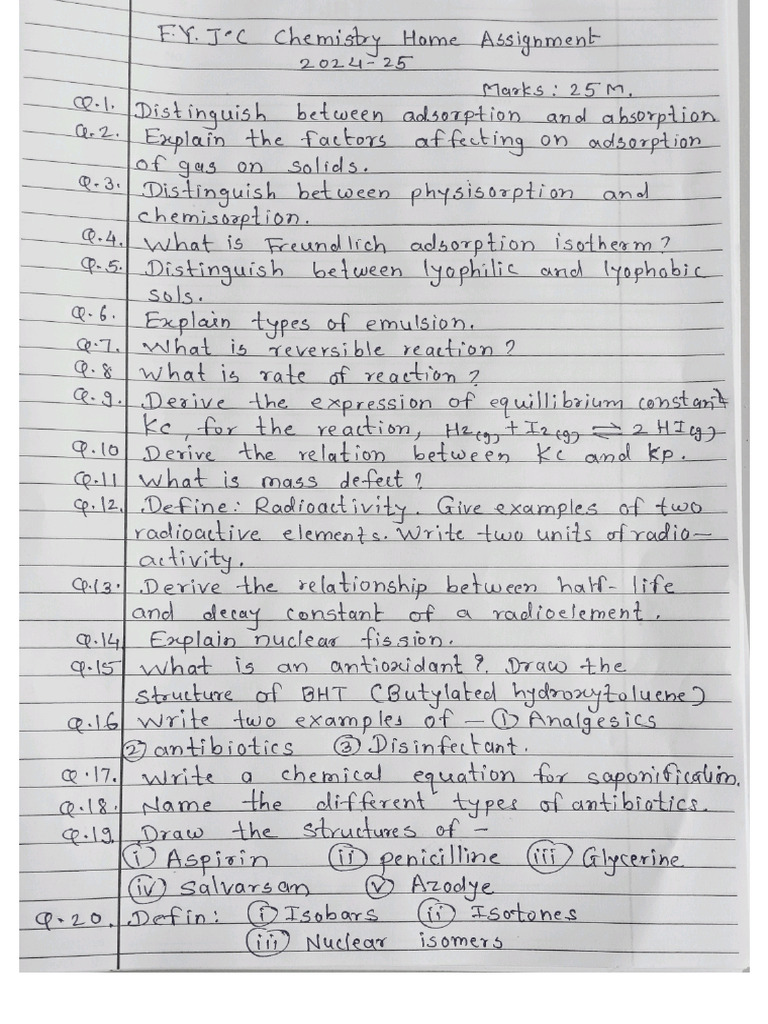 F.Y. J.C Chemistry Home Assignment
2024-25
Marks: 25 M.
Q.1. Distinguish between adsorption and absorption
Q.2. Explain the factors affecting on adsorption
of gas on solids.
Q.3. Distinguish between physisorption and
chemisorption.
Q.4. What is Freundlich adsorption isotherm?
Q.5. Distinguish between lyophilic and lyophobic
sols.
Q.6. Explain types of emulsion.
Q.7. What is reversible reaction?
Q.8 What is rate of reaction?
Q.9. Derive the expression of equillibrium constant
Kc, for the reaction, H2(g) + I2(g) ⇌ 2 HI(g)
Q.10 Derive the relation between Kc and Kp.
Q.11 What is mass defect?
Q.12. Define: Radioactivity. Give examples of two
radioactive elements. Write two units of radio-
activity.
Q.13. Derive the relationship between half-life
and decay constant of a radioelement.
Q.14 Explain nuclear fission.
Q.15 What is an antioxidant?. Draw the
structure of BHT (Butylated hydroxytoluene)
Q.16 Write two examples of - ① Analgesics
② antibiotics ③ Disinfectant.
Q.17. Write a chemical equation for saponification.
Q.18. Name the different types of antibiotics.
Q.19. Draw the structures of -
(i) Aspirin (ii) penicilline (iii) Glycerine
(iv) Salvarsan (v) Azodye
Q.20. Defin: (i) Isobars (ii) Isotones
(iii) Nuclear isomers